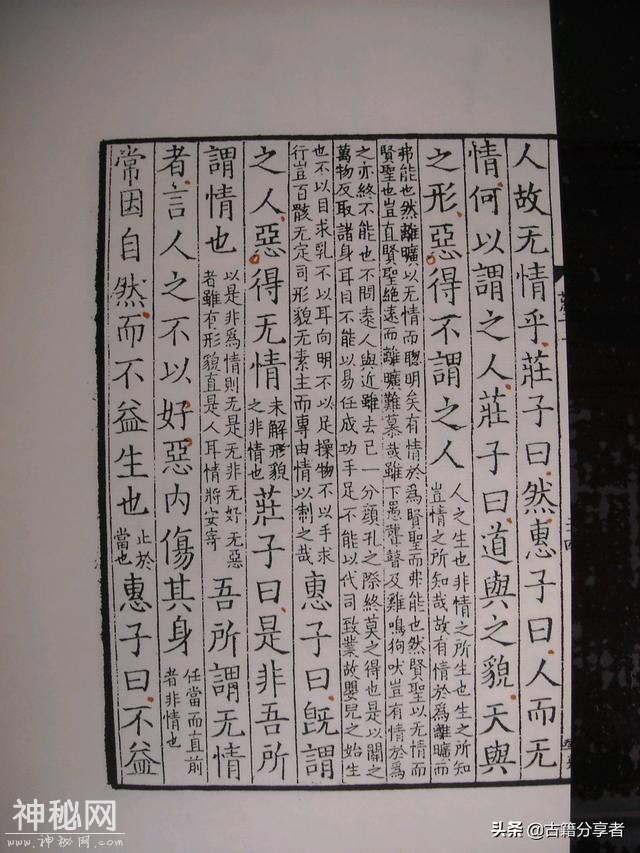 人故无情乎莊子曰然惠子曰人而无
情何以謂之人莊子曰道與之貌天與
之形惡得不謂之人
人之生也非情之所生也生之所知
豈情之所知哉故有情於為離曠而
弗能也然離曠以无情而聰明矣有情於為賢聖而弗能也然賢聖以无情而
賢聖也豈直賢聖絶遠而離曠難慕哉雖下愚聾瞽及雞鳴狗吠豈有情於為
之亦終不能也不問遠人與近雖去己一分顔孔之際終莫之得也是以關之
萬物反取諸身耳目不能以易任成功手足不能以代司致業故嬰兒之始生
也不以目求乳不以耳向明不以足操物不以手求
行豈百骸无定司形貌无素主而專由情以制之哉
惠子曰既謂
之人惡得无情
未解形貌
之非情也
莊子曰是非吾所
謂情也
以是非為情則无是无非无好无惡
者雖有形貌直是人耳情將安寄
吾所謂无情
者言人之不以好惡内傷其身
任當而直前
者非情也
常因自然而不益生也
止於
當也
惠子曰不益
神秘网
www.神秘网.COM
头条 @古籍分享者